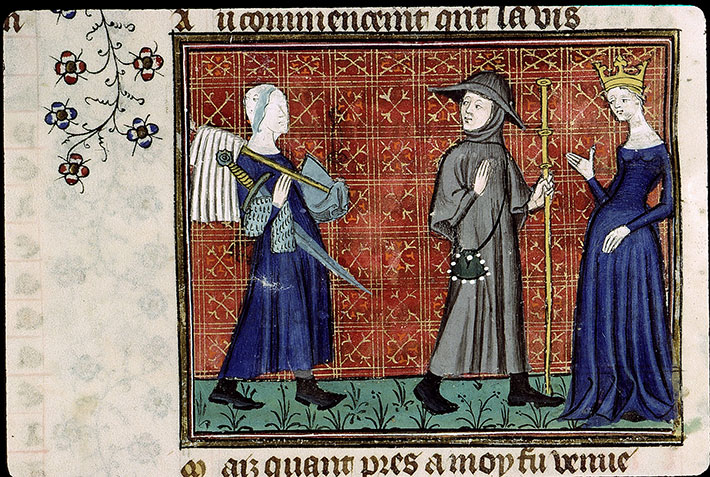 A u commencemt qnt la vis
M aiz quant pres a moy fu venue